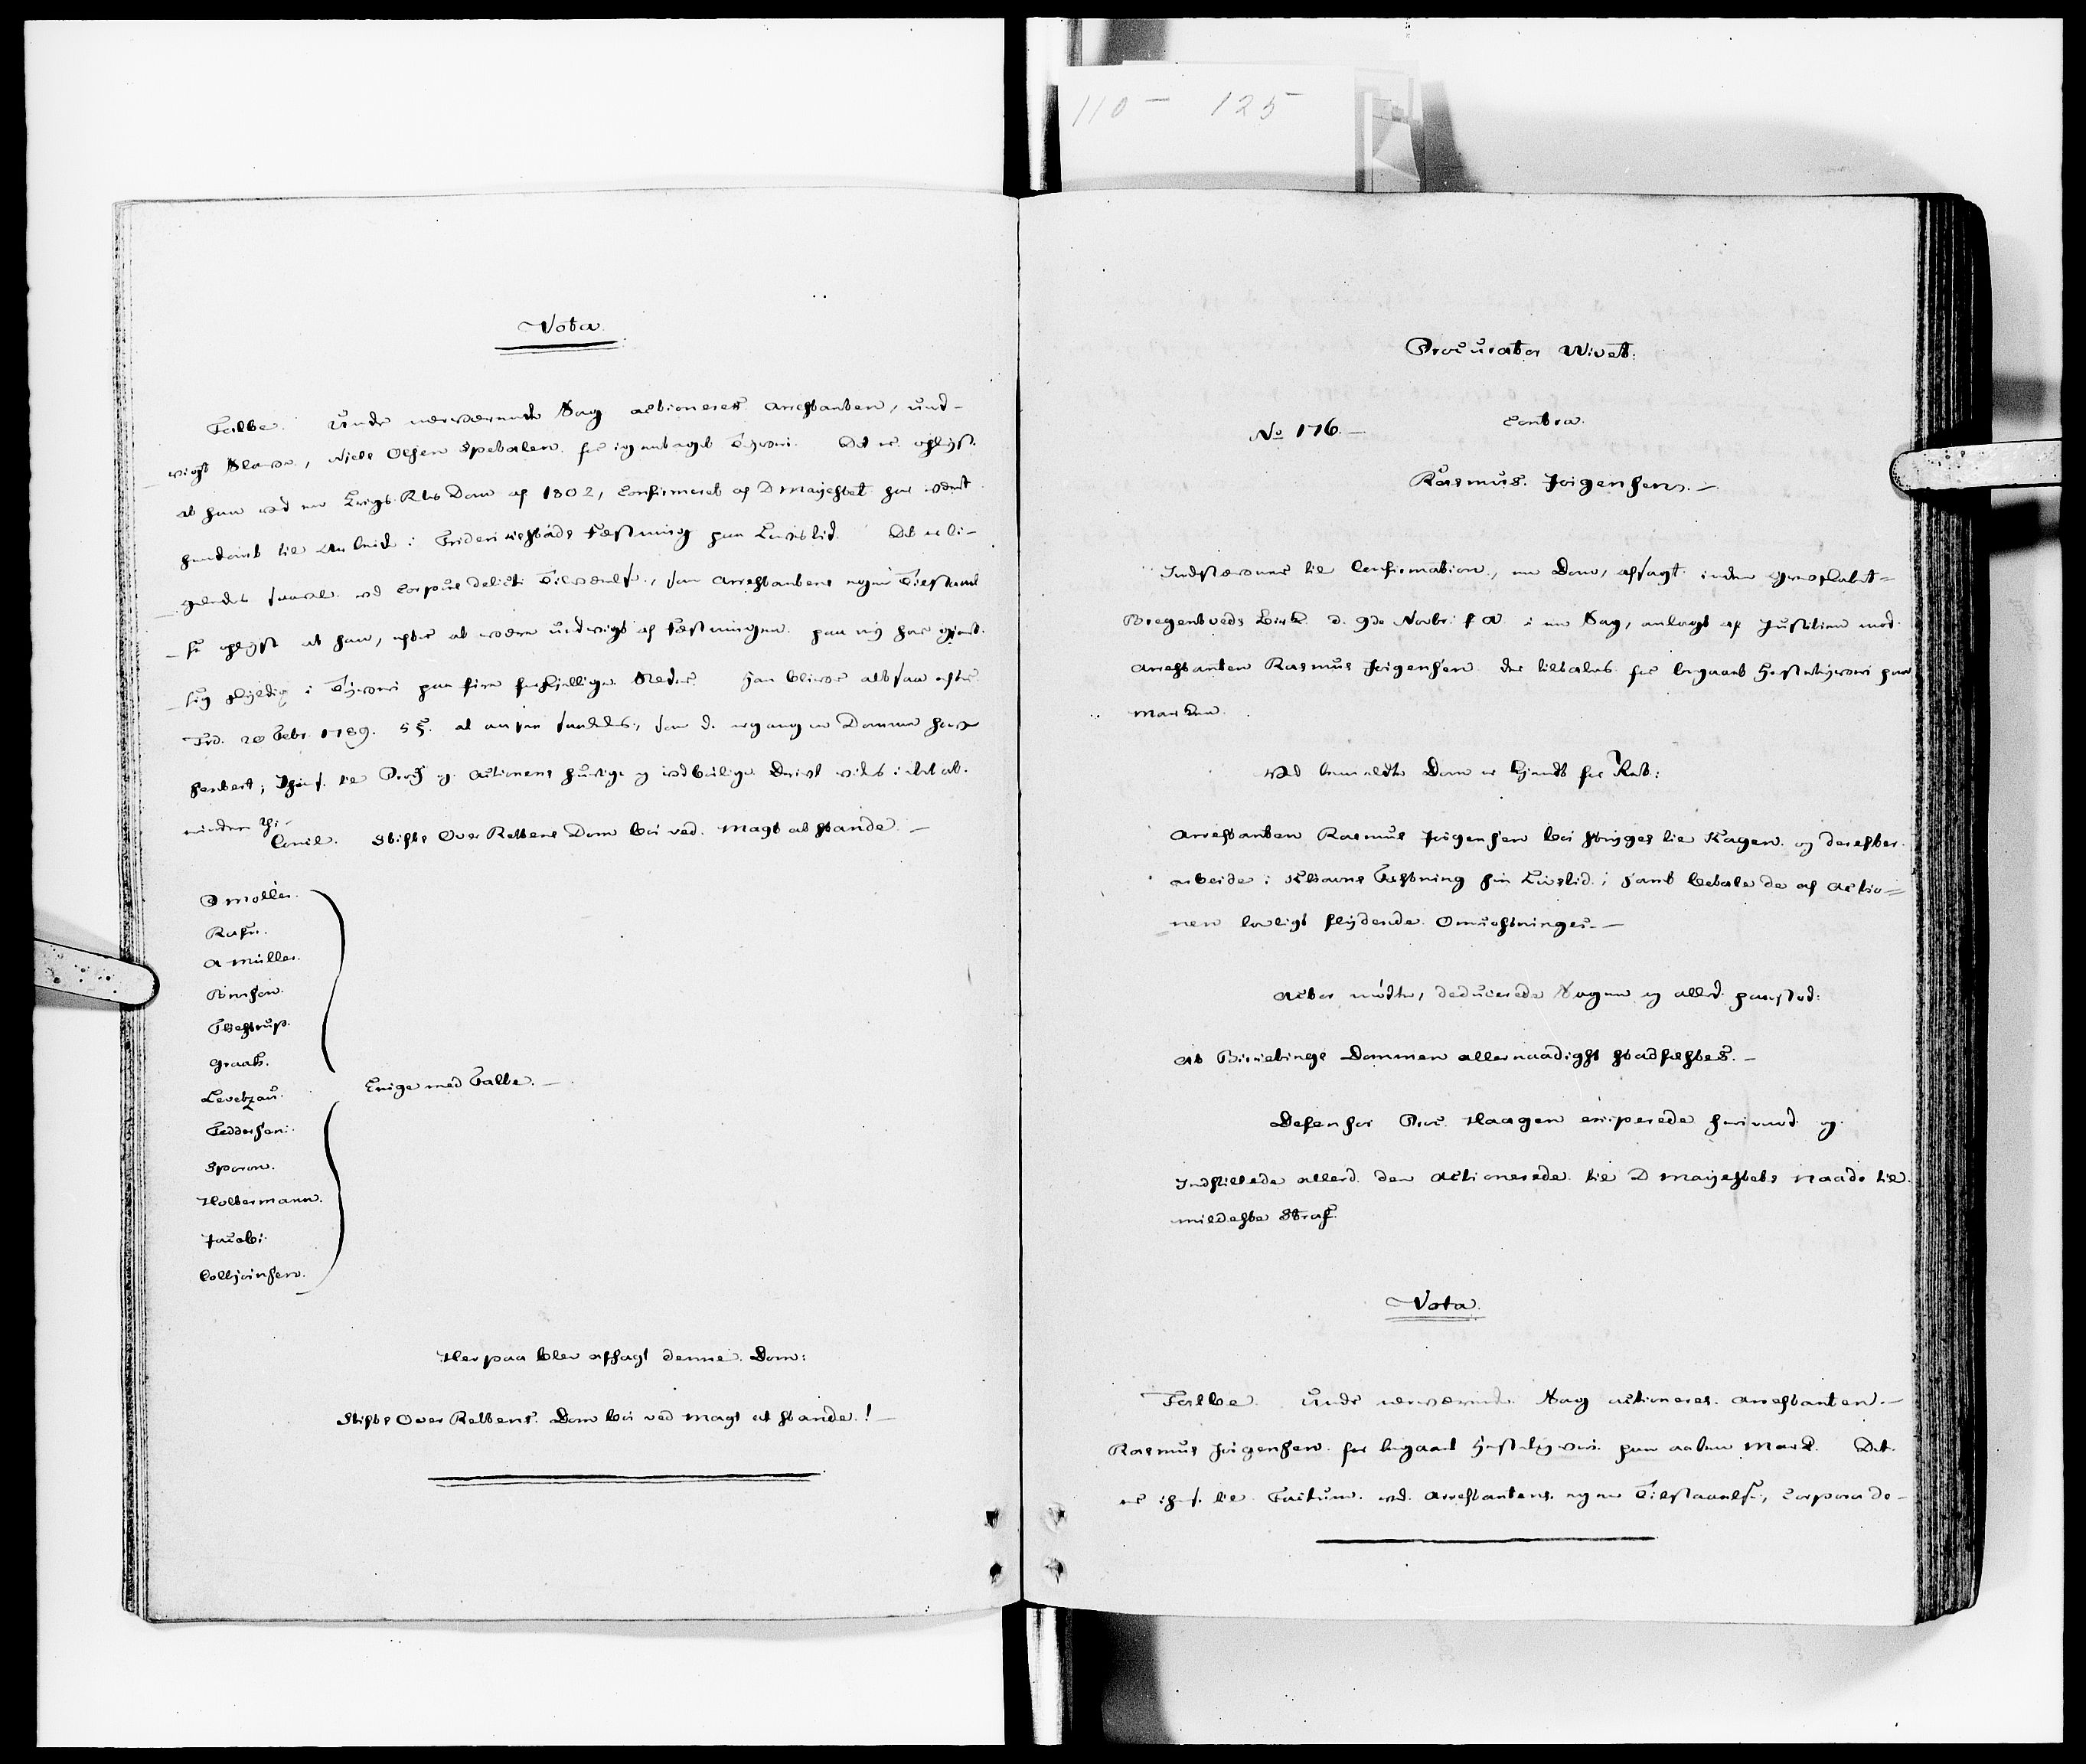 110 - 125
Vota
Falbe. Under nærværende Sag actioneres Arrestanten, und-
vigt Slave, Niels Olsen Spetalen for igientaget Tyveri. Det er oplyst
at han ved en Krigs Rts Dom af 1802, Confirmeret af D Mayestet har været
hendømt til Arbeide i Friderichstads Fæstning paa Livstid. Det er li-
geledes saavel ved Corpus delicti Tilværelse, som Arrestantens egen Tilstaael
se oplyst at han, efter at være undvigt af Fæstningen paa ny har gjort
sig skyldig i Tyveri paa fire forskjellige Steder. Han bliver altsaa efter
Frd. 20 Febr. 1789. 5 §. at ansee saaledes, som d. ergangne Domme have
henført; Ihens. til Proc og Actionens hurtige og lovlige Drivt vides intet at
erindre thi
Concil. Stifts Over Rettens Dom bør ved Magt at stande. —
P Møller.
Rafn.
A Müller.
Bruhn.
Testrup.
Graah.
Levetzau.
Feddersen.
Sporon.
Koltermann.
Jacobi
Colbjørnsen.
Enige med Falbe. —
Herpaa blev afsagt denne Dom:
Stifts Over Rettens Dom bør ved Magt at stande! —
Procurator Wivet.
Contra
No 176. —
Rasmus Jørgensen. —
Indstævner til Confirmation, en Dom, afsagt inden Grevskabet
Bregentveds Birk d. 9de Novbr: f A i en Sag, anlagt af Justitien mod
Arrestanten Rasmus Jørgensen der tiltales for begaaet Hestetyveri paa
Marken
Ved bemeldte Dom er kjendt for Ret:
Arrestanten Rasmus Jørgensen bør stryges til Kagen og derefter
arbeide i Kbhavns Fæstning sin Livstid; samt betale de af Actio=
nen lovligt flydende Omkostninger. —
Actor mødte, deducerede Sagen og allerd. paastod:
At Birketings Dommen allernaadigst stadfæstes. —
Defensor Proc. Haagen exciperede herimod og
indstillede allerd. den Actionerede til D Mayestets Naade til
mildeste Straf.
Vota
Falbe. Under nærværende Sag actioneres Arrestanten —
Rasmus Jørgensen for begaaet Hestetyveri paa aaben Mark. Det
er ihens. til Factum ved Arrestantens egen Tilstaaelse, Corpora de-